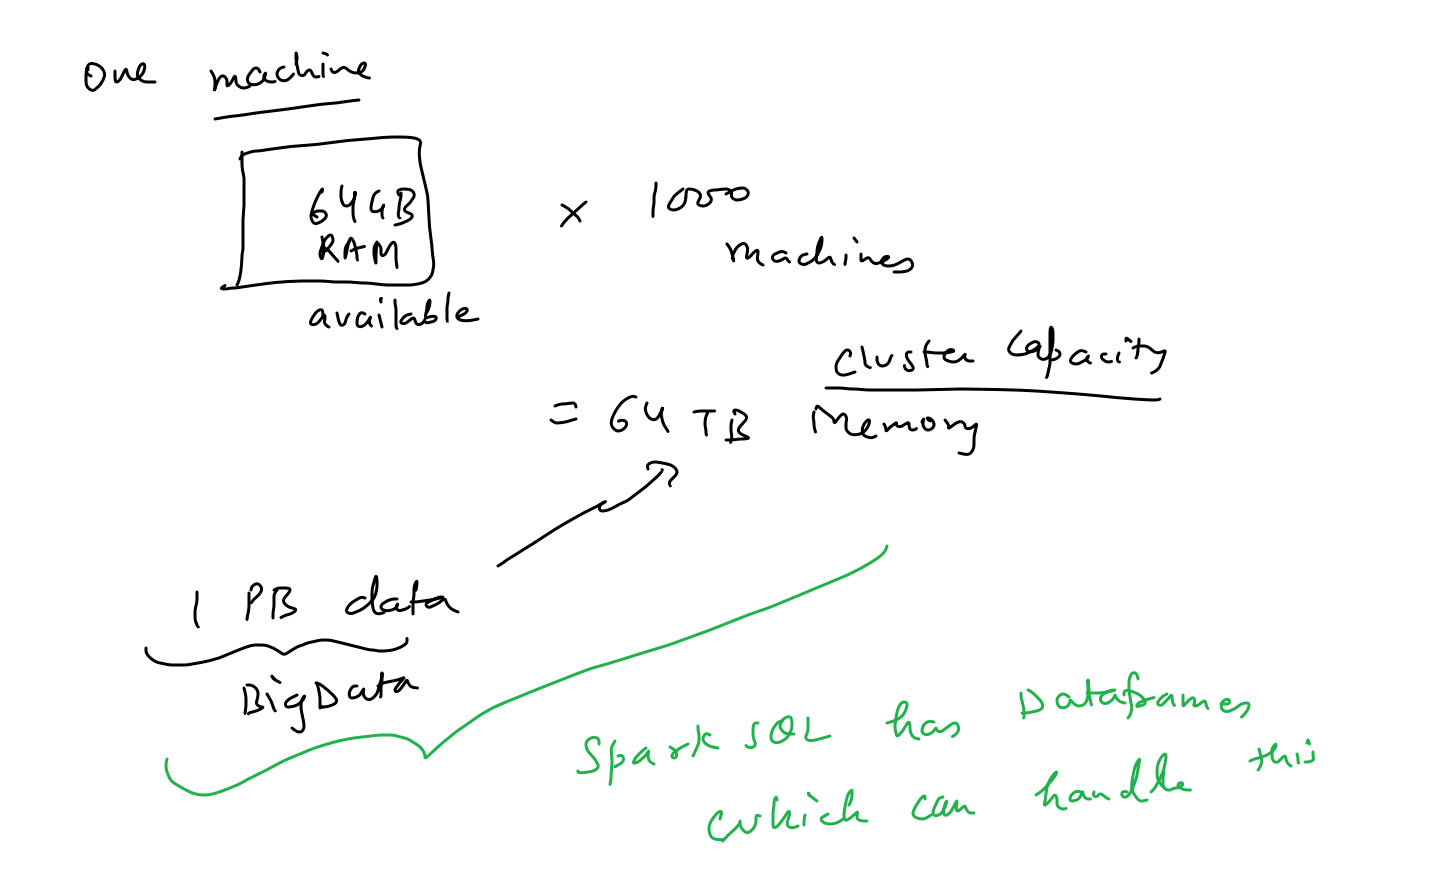 One machine
64GB
RAM
available
× 1000
machines
Cluster Capacity
= 64 TB Memory
1 PB data
BigData
Spark SQL has Dataframes
which can handle this